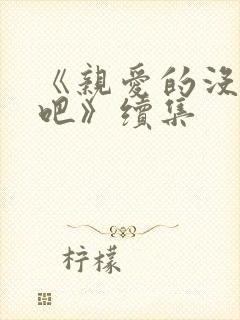 《親愛的沒
吧》續集
柠檬